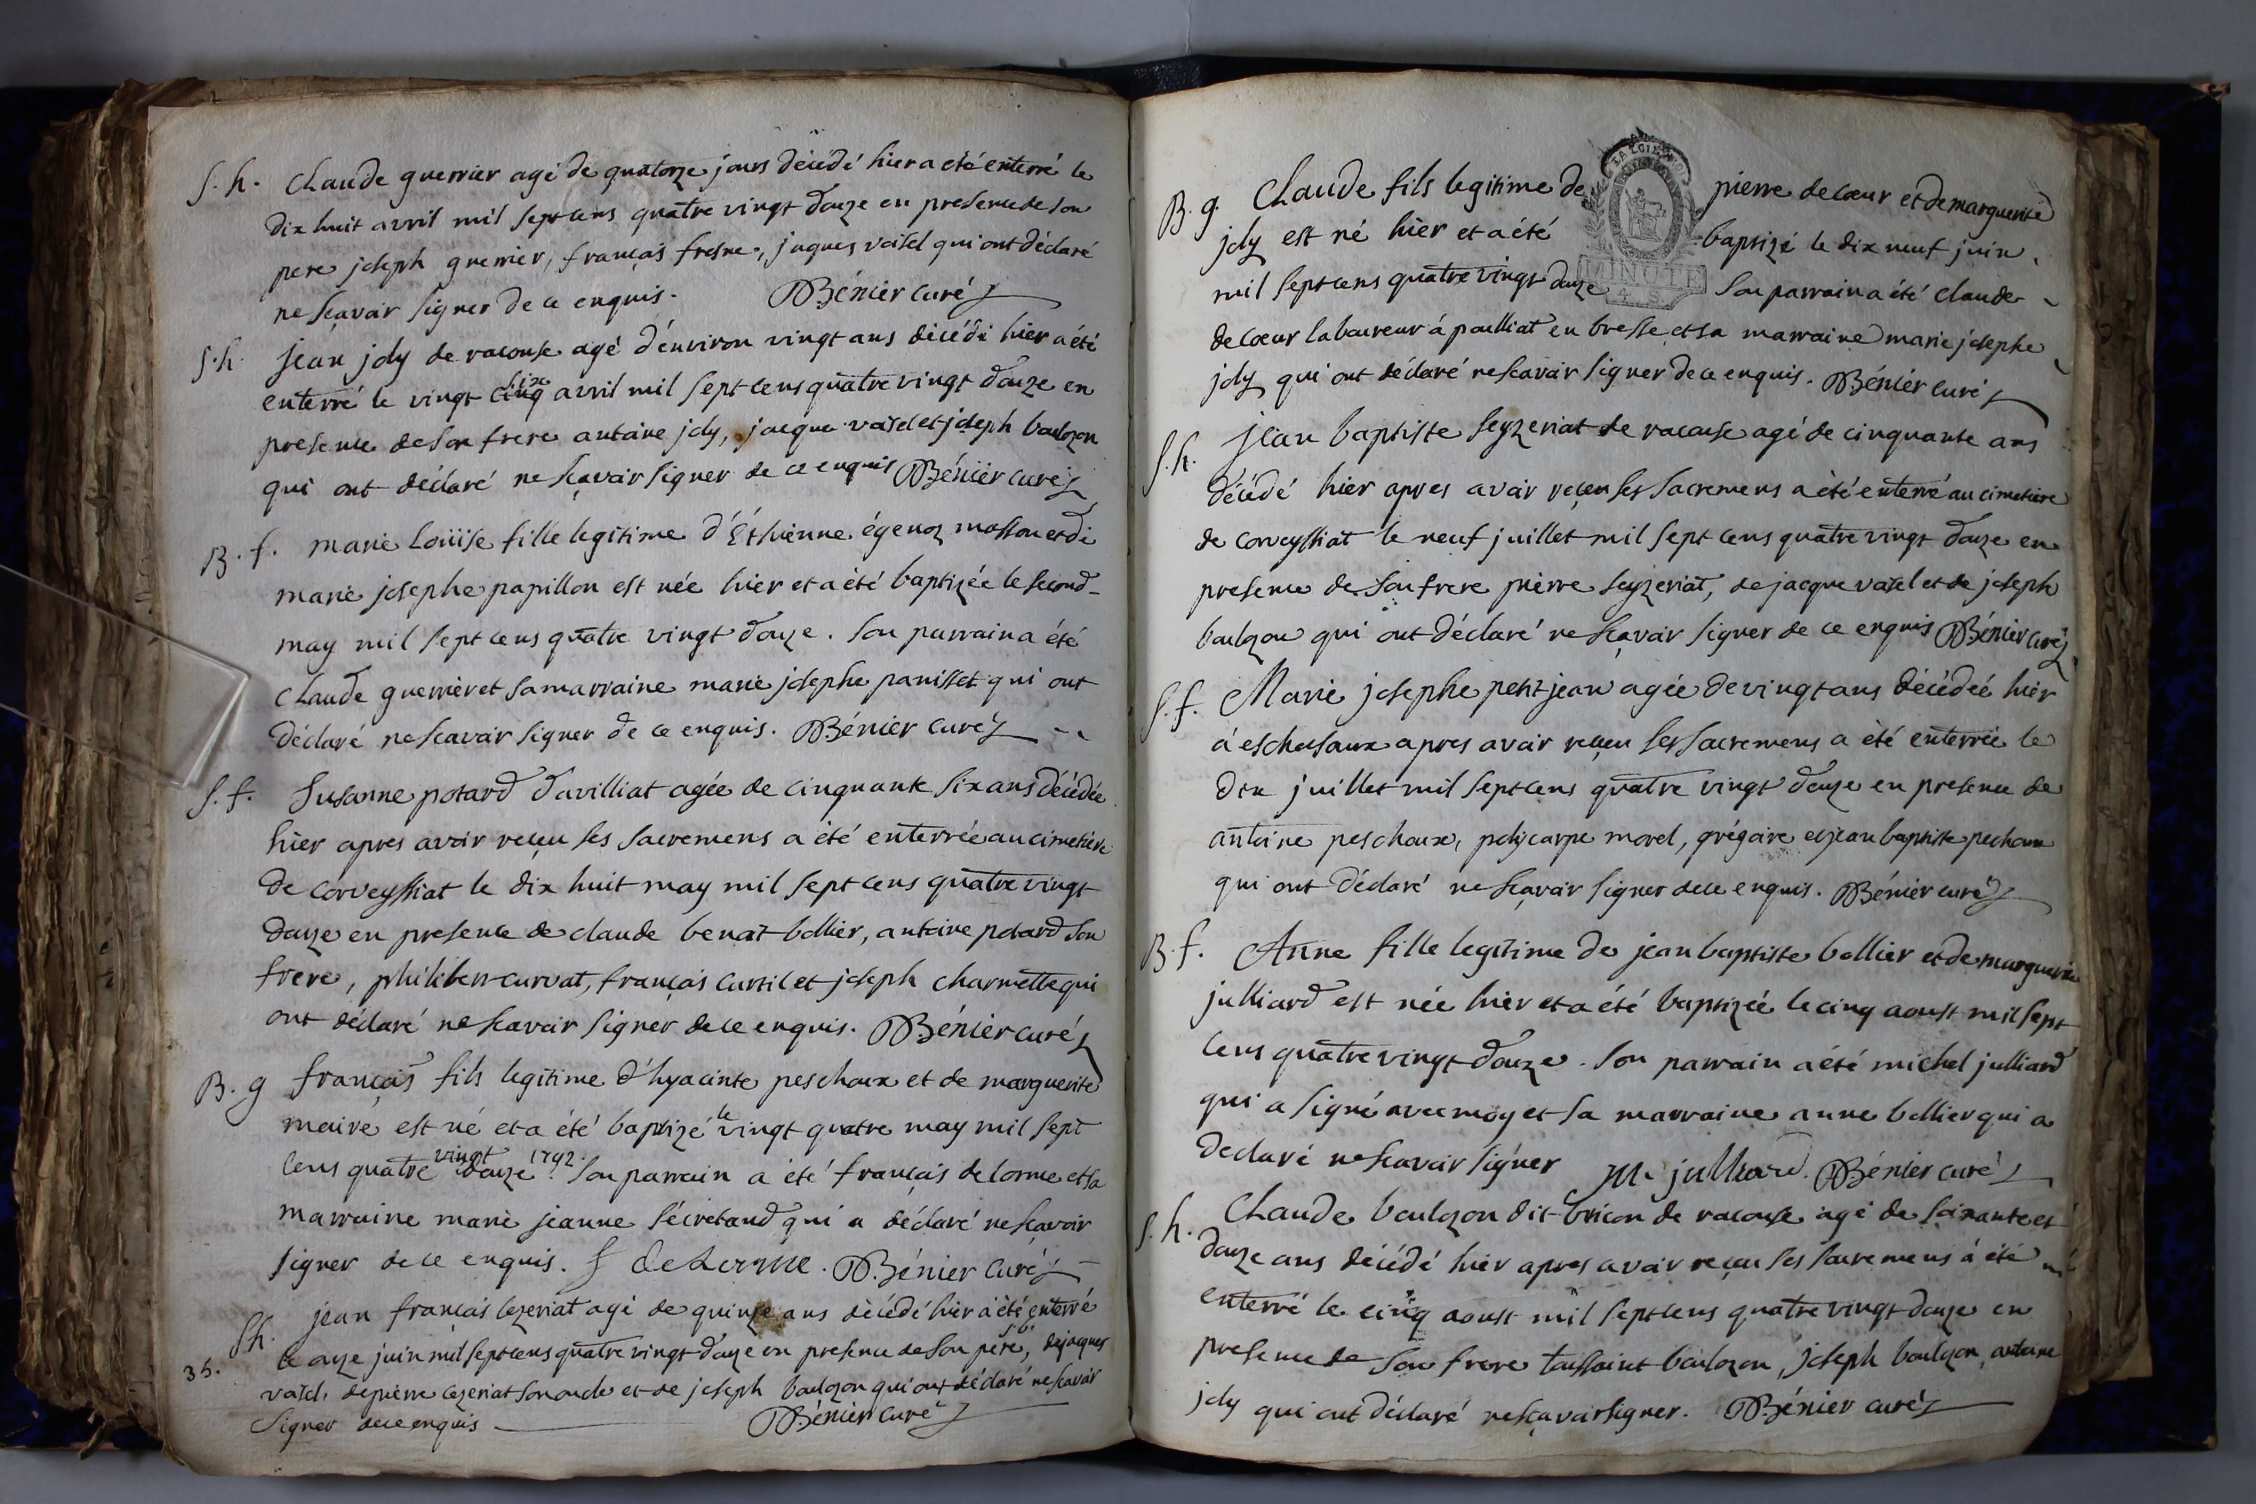 S. h. Claude guerrier agé de quatorze jours décédé hier a été enterré le
dix huit avril mil sept cens quatre vingt douze en presence de son
pere joseph guerrier, françois fresne, jaques vatel qui ont déclaré
ne sçavoir signer de ce enquis. Bénier curé
S. h. jean joly de racouse agé d'environ vingt ans décédé hier a été
enterré le vingt cinq six avril mil sept cens quatre vingt douze en
presence de son frere antoine joly, jacque vatel et joseph boulozon
qui ont déclaré ne sçavoir signer de ce enquis Bénier curé
B. f. marie Loüise fille legitime d'Éthienne égenoz masson et de
marie josephe papillon est née hier et a été baptizée le second
may mil sept cens quatre vingt douze. son parrain a été
Claude guerrier et sa marraine marie josephe panisset qui ont
déclaré ne scavoir signer de ce enquis. Bénier curé
S. f. Susanne potard d'avilliat agée de cinquante six ans décédée
hier apres avoir reçeu ses sacremens a été enterrée au cimetiere
de corveyssiat le dix huit may mil sept cens quatre vingt
douze en presence de claude benoit bollier, antoine potard son
frere, philibert curvat, françois curtil et joseph charnette qui
ont déclaré ne scavoir signer de ce enquis. Bénier curé
B. g françois fils legitime d'hyacinte peschoux et de marguerite
maire est né et a été baptizé le vingt quatre may mil sept
cens quatre vingt douze 1792. son parrain a été françois delorme et sa
marraine marie jeanne sécretand qui a déclaré ne sçavoir
signer de ce enquis. f delorme. Bénier curé
Sh. jean françois cezeriat agé de quinze ans décédé hier a été enterré
35. le onze juin mil sept cens quatre vingt douze en presence de son pere, de jacques
vatel, de pierre cezeriat son oncle et de joseph boulozon qui ont déclaré ne scavoir
signer de ce enquis Bénier curé
B. g. Claude fils legitime de pierre decœur et de marguerite
joly est né hier et a été baptizé le dix neuf juin
mil sept cens quatre vingt douze son parrain a été claude
decœur laboureur á poulliat en bresse et sa marraine marie josephe
joly qui ont déclaré ne scavoir signer de ce enquis. Bénier curé
S. h. jean baptiste seyzeriat de racouse agé de cinquante ans
décédé hier apres avoir reçeu ses sacremens a été enterré au cimetiere
de corveyssiat le neuf juillet mil sept cens quatre vingt douze en
presence de son frere pierre seyzeriat, de jacque vatel et de joseph
boulozon qui ont déclaré ne sçavoir signer de ce enquis Bénier curé
S. f. Marie josephe petitjean agée de vingt ans décédée hier
á eschesaux apres avoir reçeu ses sacremens a été enterrée le
dix juillet mil sept cens quatre vingt douze en presence de
antoine peschoux, policarpe morel, grégoire et jean baptiste pechoux
qui ont déclaré ne sçavoir signer de ce enquis. Bénier curé
B. f. Anne fille legitime de jean baptiste bollier et de marguerite
julliard est née hier et a été baptizée le cinq aoust mil sept
cens quatre vingt douze. son parrain a été michel julliard
qui a signé avec moy et sa marraine anne bollier qui a
declaré ne scavoir signer M. julliard. Bénier curé
S. h. Claude boulozon dit bricon de racouse agé de soixante et
douze ans décédé hier apres avoir reçeu ses sacremens á été
enterré le cinq aoust mil sept cens quatre vingt douze en
presence de son frere toussaint boulozon, joseph boulozon, antoine
joly qui ont déclaré ne sçavoir signer. Bénier curé